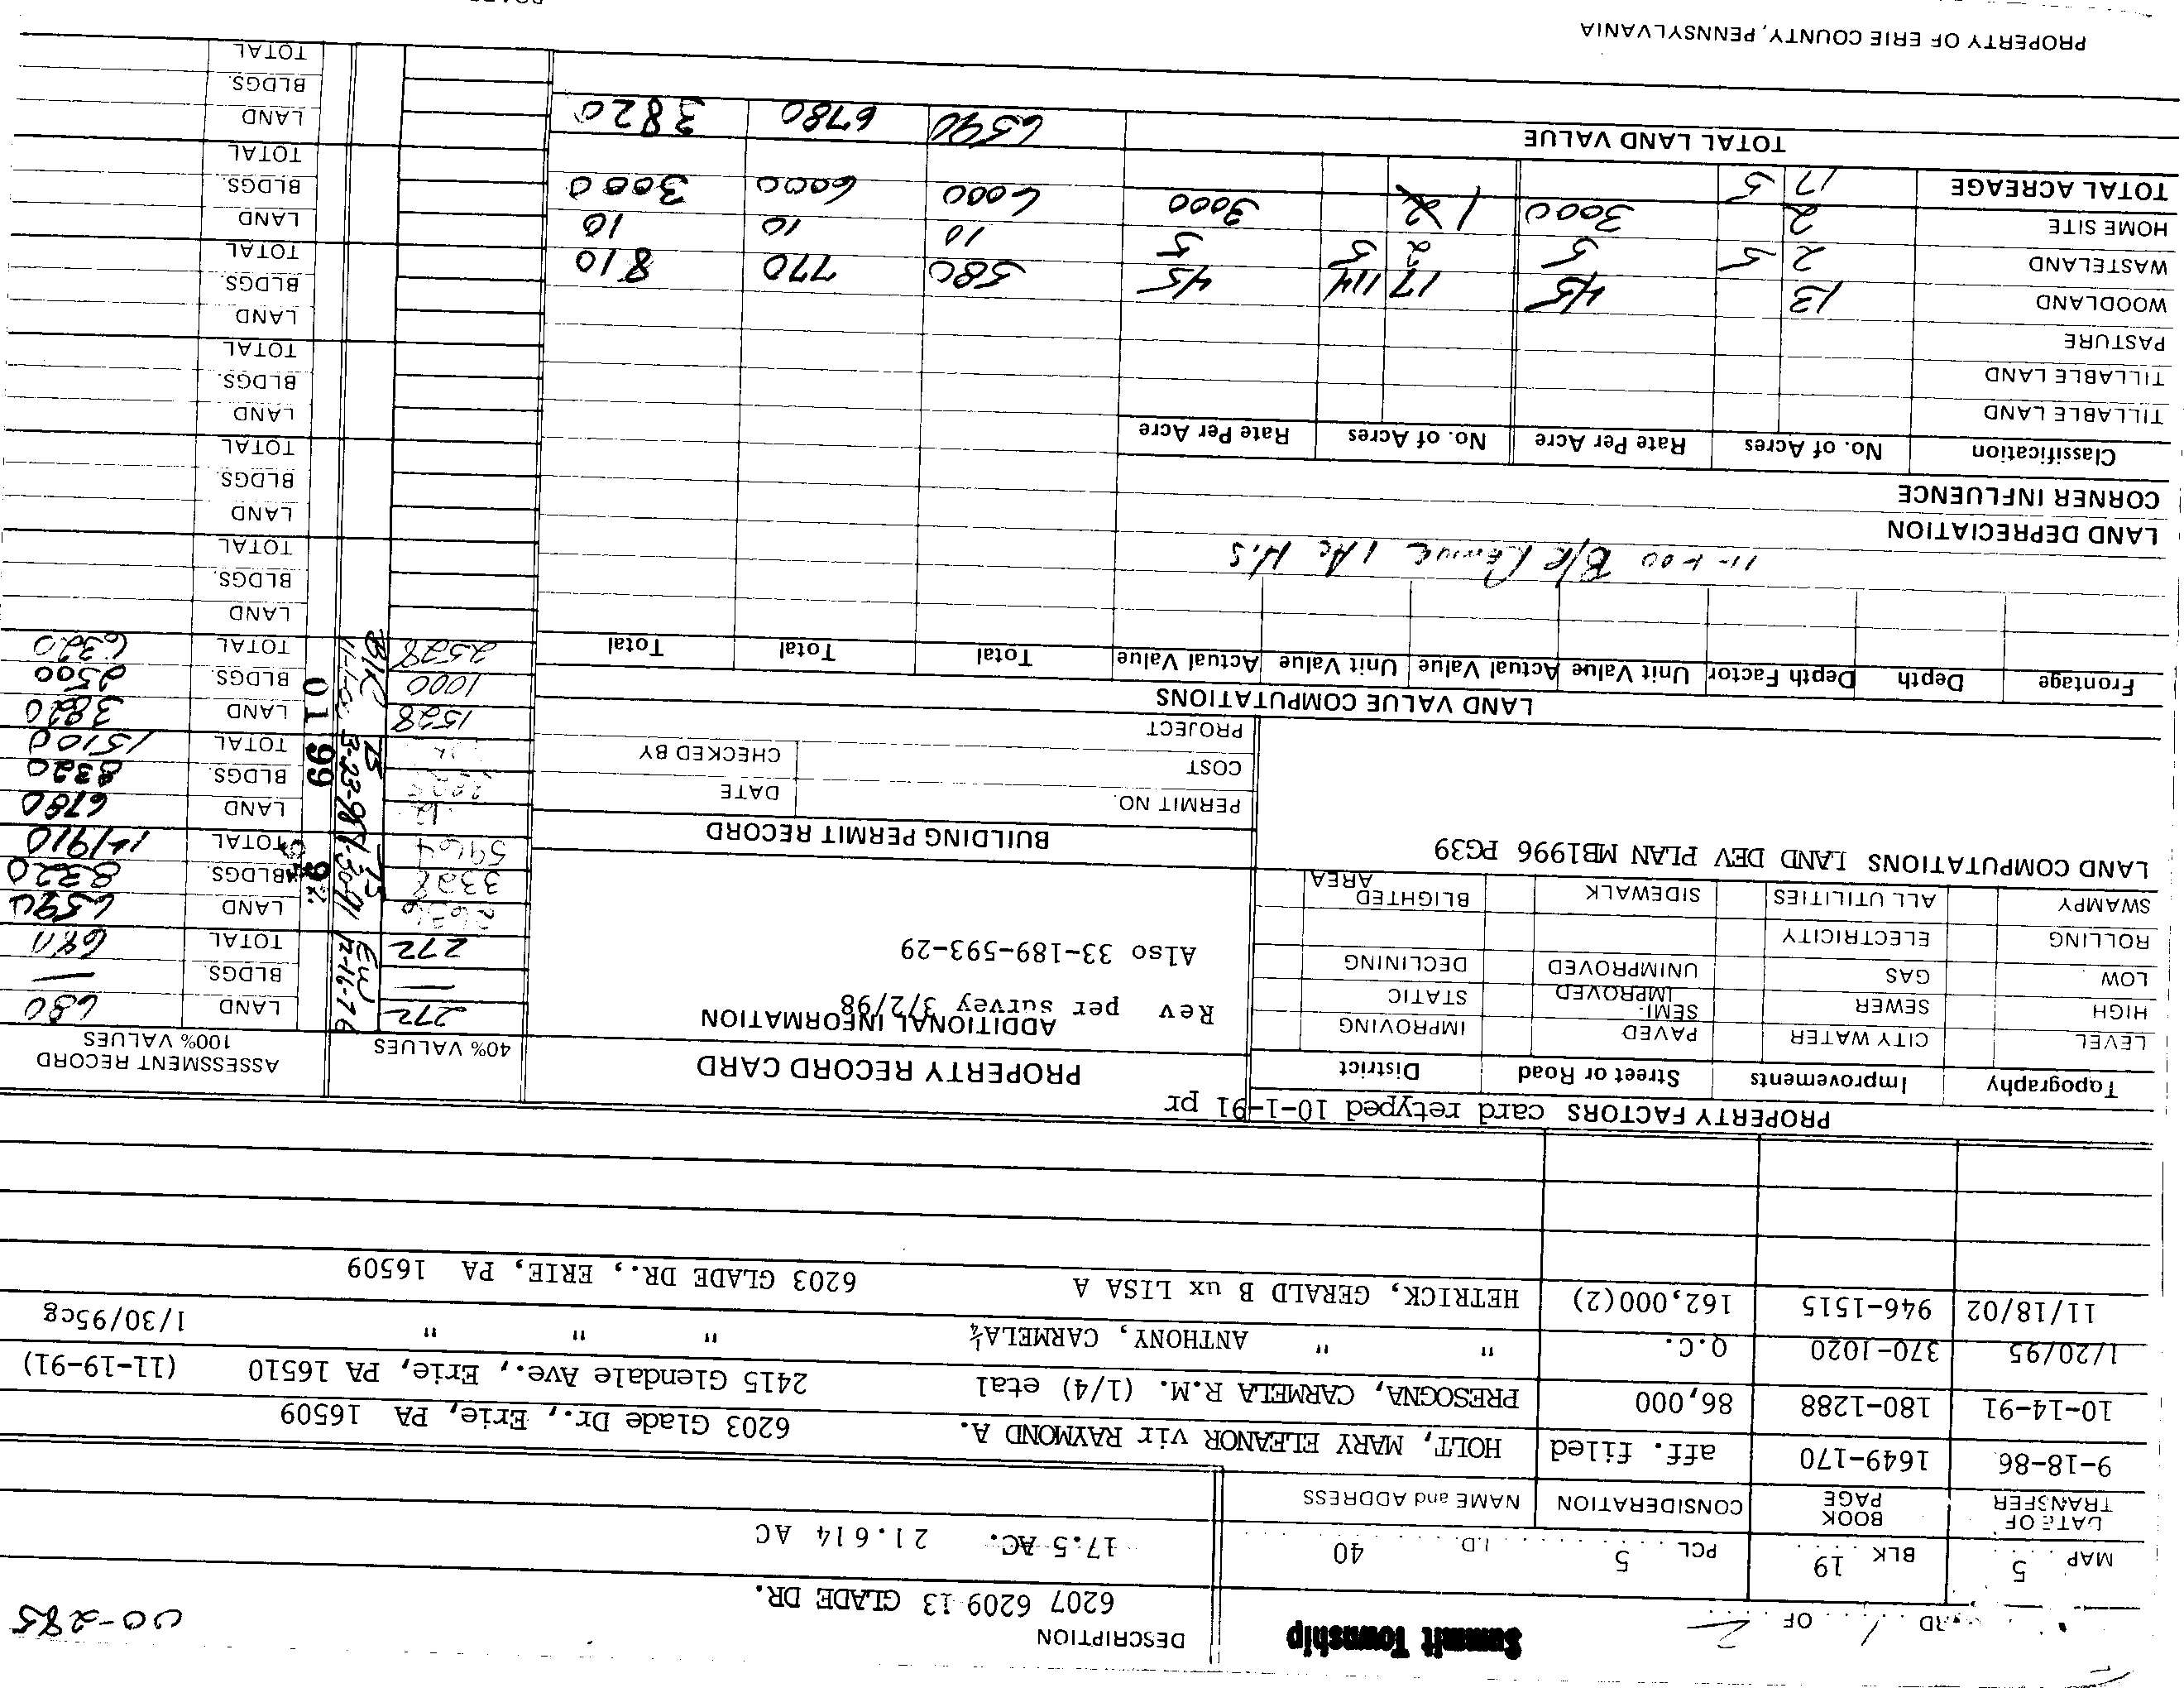 CARD 1 OF 2
Summit Township
DESCRIPTION
00-285
6207 6209-13 GLADE DR.
MAP 5 BLK 19 PCL 5 I.D. 40
17.5 AC. 21.614 AC
DATE OF TRANSFER BOOK PAGE CONSIDERATION NAME and ADDRESS
9-18-86 1649-170 aff. filed HOLT, MARY ELEANOR vir RAYMOND A. 6203 Glade Dr., Erie, PA 16509
10-14-91 180-1288 86,000 PRESOGNA, CARMELA R.M. (1/4) etal 2415 Glendale Ave., Erie, PA 16510 (11-19-91)
1/20/95 370-1020 Q.C. " " ANTHONY, CARMELA¼ " " " 1/30/95cg
11/18/02 946-1515 162,000(2) HETRICK, GERALD B ux LISA A 6203 GLADE DR., ERIE, PA 16509
PROPERTY FACTORS card retyped 10-1-91 pr
Topography Improvements Street or Road District
LEVEL CITY WATER PAVED IMPROVING
HIGH SEWER SEMI-IMPROVED STATIC
LOW GAS UNIMPROVED DECLINING
ROLLING ELECTRICITY
SWAMPY ALL UTILITIES SIDEWALK BLIGHTED AREA
LAND COMPUTATIONS LAND DEV PLAN MB1996 PG39
PROPERTY RECORD CARD
ADDITIONAL INFORMATION
Rev per survey 3/2/98
Also 33-189-593-29
BUILDING PERMIT RECORD
PERMIT NO. DATE
COST CHECKED BY
PROJECT
40% VALUES ASSESSMENT RECORD 100% VALUES
272 EW 12-16-76 LAND 680
— BLDGS. —
272 TOTAL 680
2636 75 LAND 6590
3328 BLDGS. 8320
5964 TOTAL 14910
LAND 6780
3-23-98 99 BLDGS. 8320
TOTAL 15100
1528 BKC 01 LAND 3820
1000 BLDGS. 2500
2528 TOTAL 6320
LAND
BLDGS.
TOTAL
LAND
BLDGS.
TOTAL
LAND
BLDGS.
TOTAL
LAND
BLDGS.
TOTAL
LAND
BLDGS.
TOTAL
LAND
BLDGS.
TOTAL
LAND VALUE COMPUTATIONS
Frontage Depth Depth Factor Unit Value Actual Value Unit Value Actual Value Total Total Total
11-1-00 B/C Remove 1 Ac H.S
LAND DEPRECIATION
CORNER INFLUENCE
Classification No. of Acres Rate Per Acre No. of Acres Rate Per Acre
TILLABLE LAND
TILLABLE LAND
PASTURE
WOODLAND 13 45 17 114 45 580 770 810
WASTELAND 2 5 5 2 5 5 10 10 10
HOME SITE 2 3000 1 2 3000 6000 6000 3000
TOTAL ACREAGE 17 5
TOTAL LAND VALUE 6590 6780 3820
PROPERTY OF ERIE COUNTY, PENNSYLVANIA